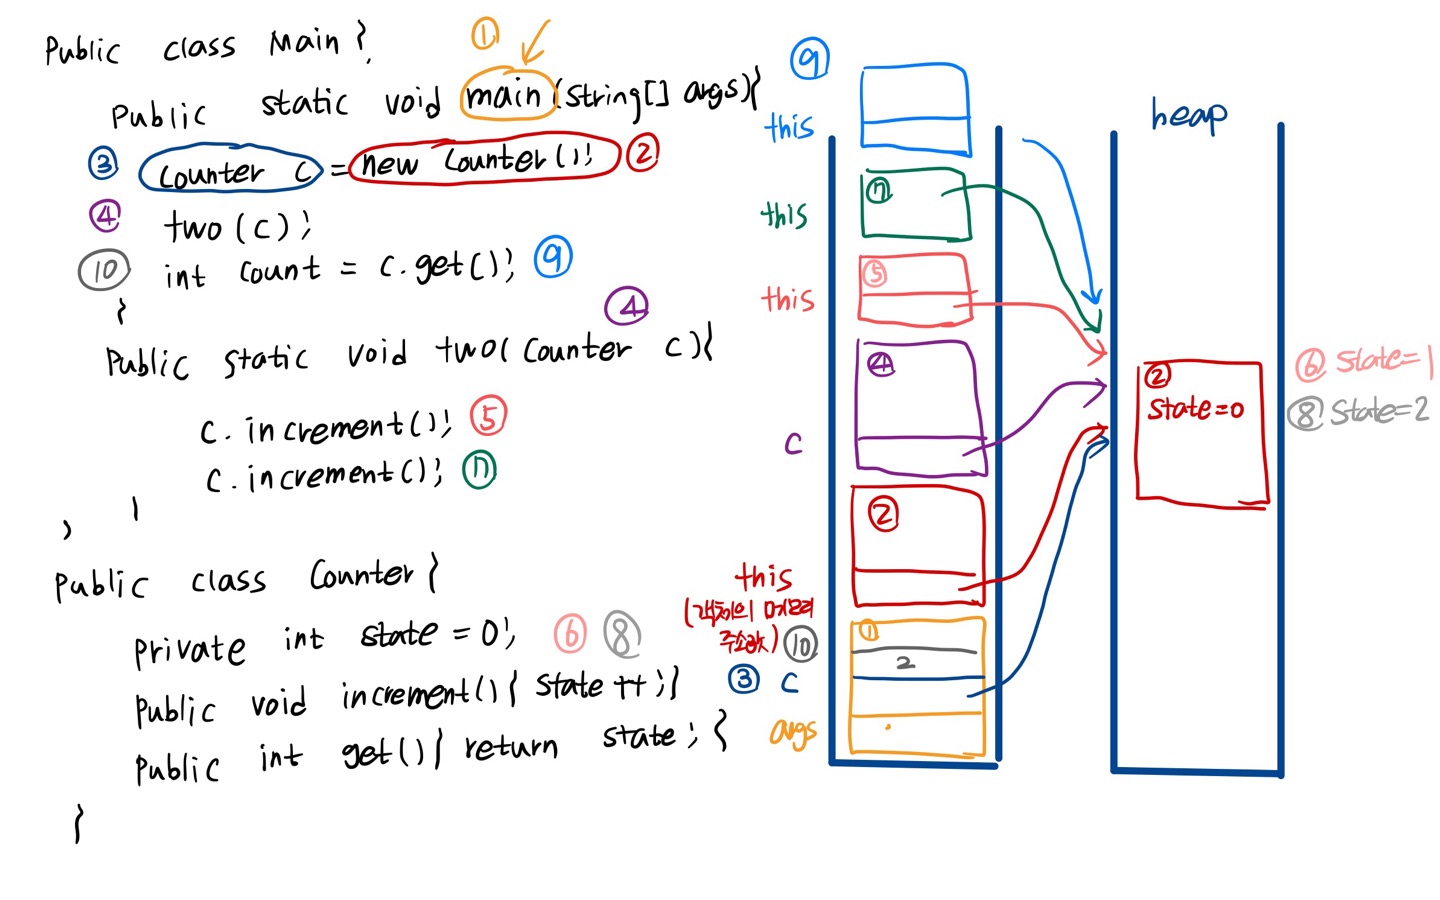 Public class Main {
①
Public static void main (String[] args){
③ Counter c = new Counter(); ②
④ two (c);
⑩ int count = c.get(); ⑨
}
④
Public static void two( Counter c){
c. increment(); ⑤
c. increment(); ⑦
} }
Public class Counter {
private int state = 0; ⑥ ⑧
Public void increment() { state ++; }
Public int get() { return state; {
}
⑨
this
this ⑦
this ⑤
④
c
②
this
(객체의 메모리
주소값) ⑩ ①
2
③ c
args
heap
②
State=0
⑥ State=1
⑧ State=2